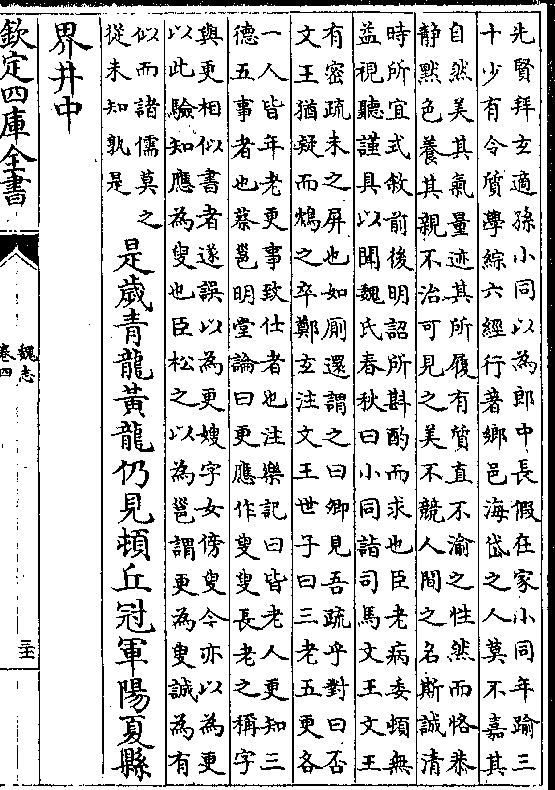 先賢拜玄適孫小同以為郎中長假在家小同年踰三
十少有令質學綜六經行著鄉邑海岱之人莫不嘉其
自然美其氣量迹其所履有質直不渝之性然而恪恭
静黙色養其親不治可見之美不競人間之名斯誠清
時所宜式敘前後明詔所斟酌而求也臣老病委頓無
益視聽謹具以聞魏氏春秋曰小同詣司馬文王文王
有密疏未之屏也如厠還謂之曰卿見吾疏乎對曰否
文王猶疑而鴆之卒鄭玄注文王世子曰三老五更各
一人皆年老更事致仕者也注樂記曰皆老人更知三
德五事者也蔡邕明堂論曰更應作叟叟長老之稱字
與更相似書者遂誤以為更嫂字女傍叟今亦以為更
以此驗知應為叟也臣松之以為邕謂更為叟誠為有
似而諸儒莫之
從未知孰是
是歲青龍黃龍仍見頓丘冠軍陽夏縣
界井中
欽定四庫全書
魏志
卷四